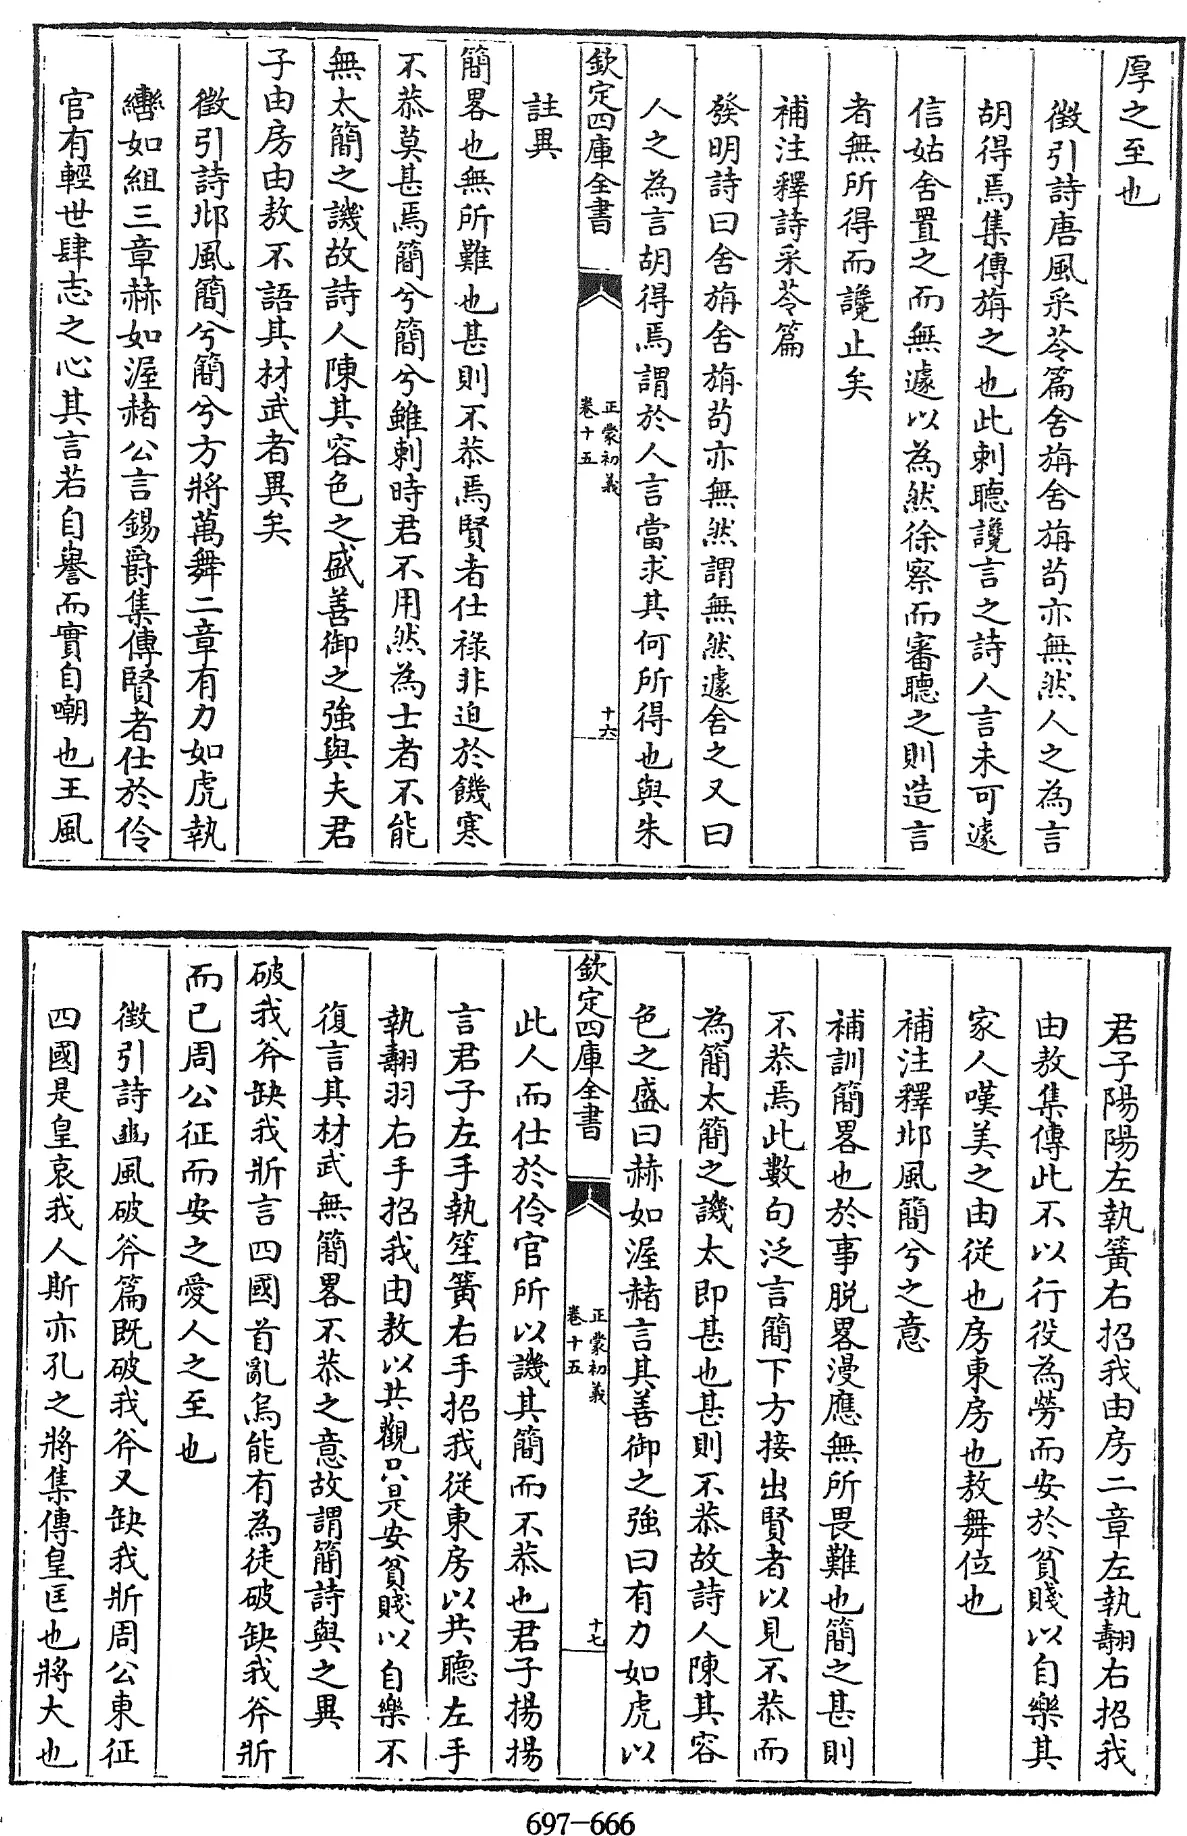 厚之至也
徵引詩唐風采苓篇舍旃舍旃苟亦無然人之為言
胡得焉集傳旃之也此刺聽讒言之詩人言未可遽
信姑舍置之而無遽以為然徐察而審聽之則造言
者無所得而讒止矣
補注釋詩采苓篇
發明詩曰舍旃舍旃苟亦無然謂無然遽舍之又曰
人之為言胡得焉謂於人言當求其何所得也與朱
欽定四庫全書
正蒙初義
卷十五
十六
註異
簡畧也無所難也甚則不恭焉賢者仕祿非迫於饑寒
不恭莫甚焉簡兮簡兮雖刺時君不用然為士者不能
無太簡之譏故詩人陳其容色之盛善御之強與夫君
子由房由敖不語其材武者異矣
徵引詩邶風簡兮簡兮方將萬舞二章有力如虎執
轡如組三章赫如渥赭公言錫爵集傳賢者仕於伶
官有輕世肆志之心其言若自譽而實自嘲也王風
君子陽陽左執簧右招我由房二章左執翿右招我
由敖集傳此不以行役為勞而安於貧賤以自樂其
家人嘆美之由從也房東房也敖舞位也
補注釋邶風簡兮之意
補訓簡畧也於事脫畧漫應無所畏難也簡之甚則
不恭焉此數句泛言簡下方接出賢者以見不恭而
為簡太簡之譏太即甚也甚則不恭故詩人陳其容
色之盛曰赫如渥赭言其善御之強曰有力如虎以
欽定四庫全書
正蒙初義
卷十五
十七
此人而仕於伶官所以譏其簡而不恭也君子揚揚
言君子左手執笙簧右手招我從東房以共聽左手
執翿羽右手招我由敖以共觀只是安貧賤以自樂不
復言其材武無簡畧不恭之意故謂簡詩與之異
破我斧缺我斨言四國首亂烏能有為徒破缺我斧斨
而已周公征而安之愛人之至也
徵引詩豳風破斧篇既破我斧又缺我斨周公東征
四國是皇哀我人斯亦孔之將集傳皇匡也將大也
697-666